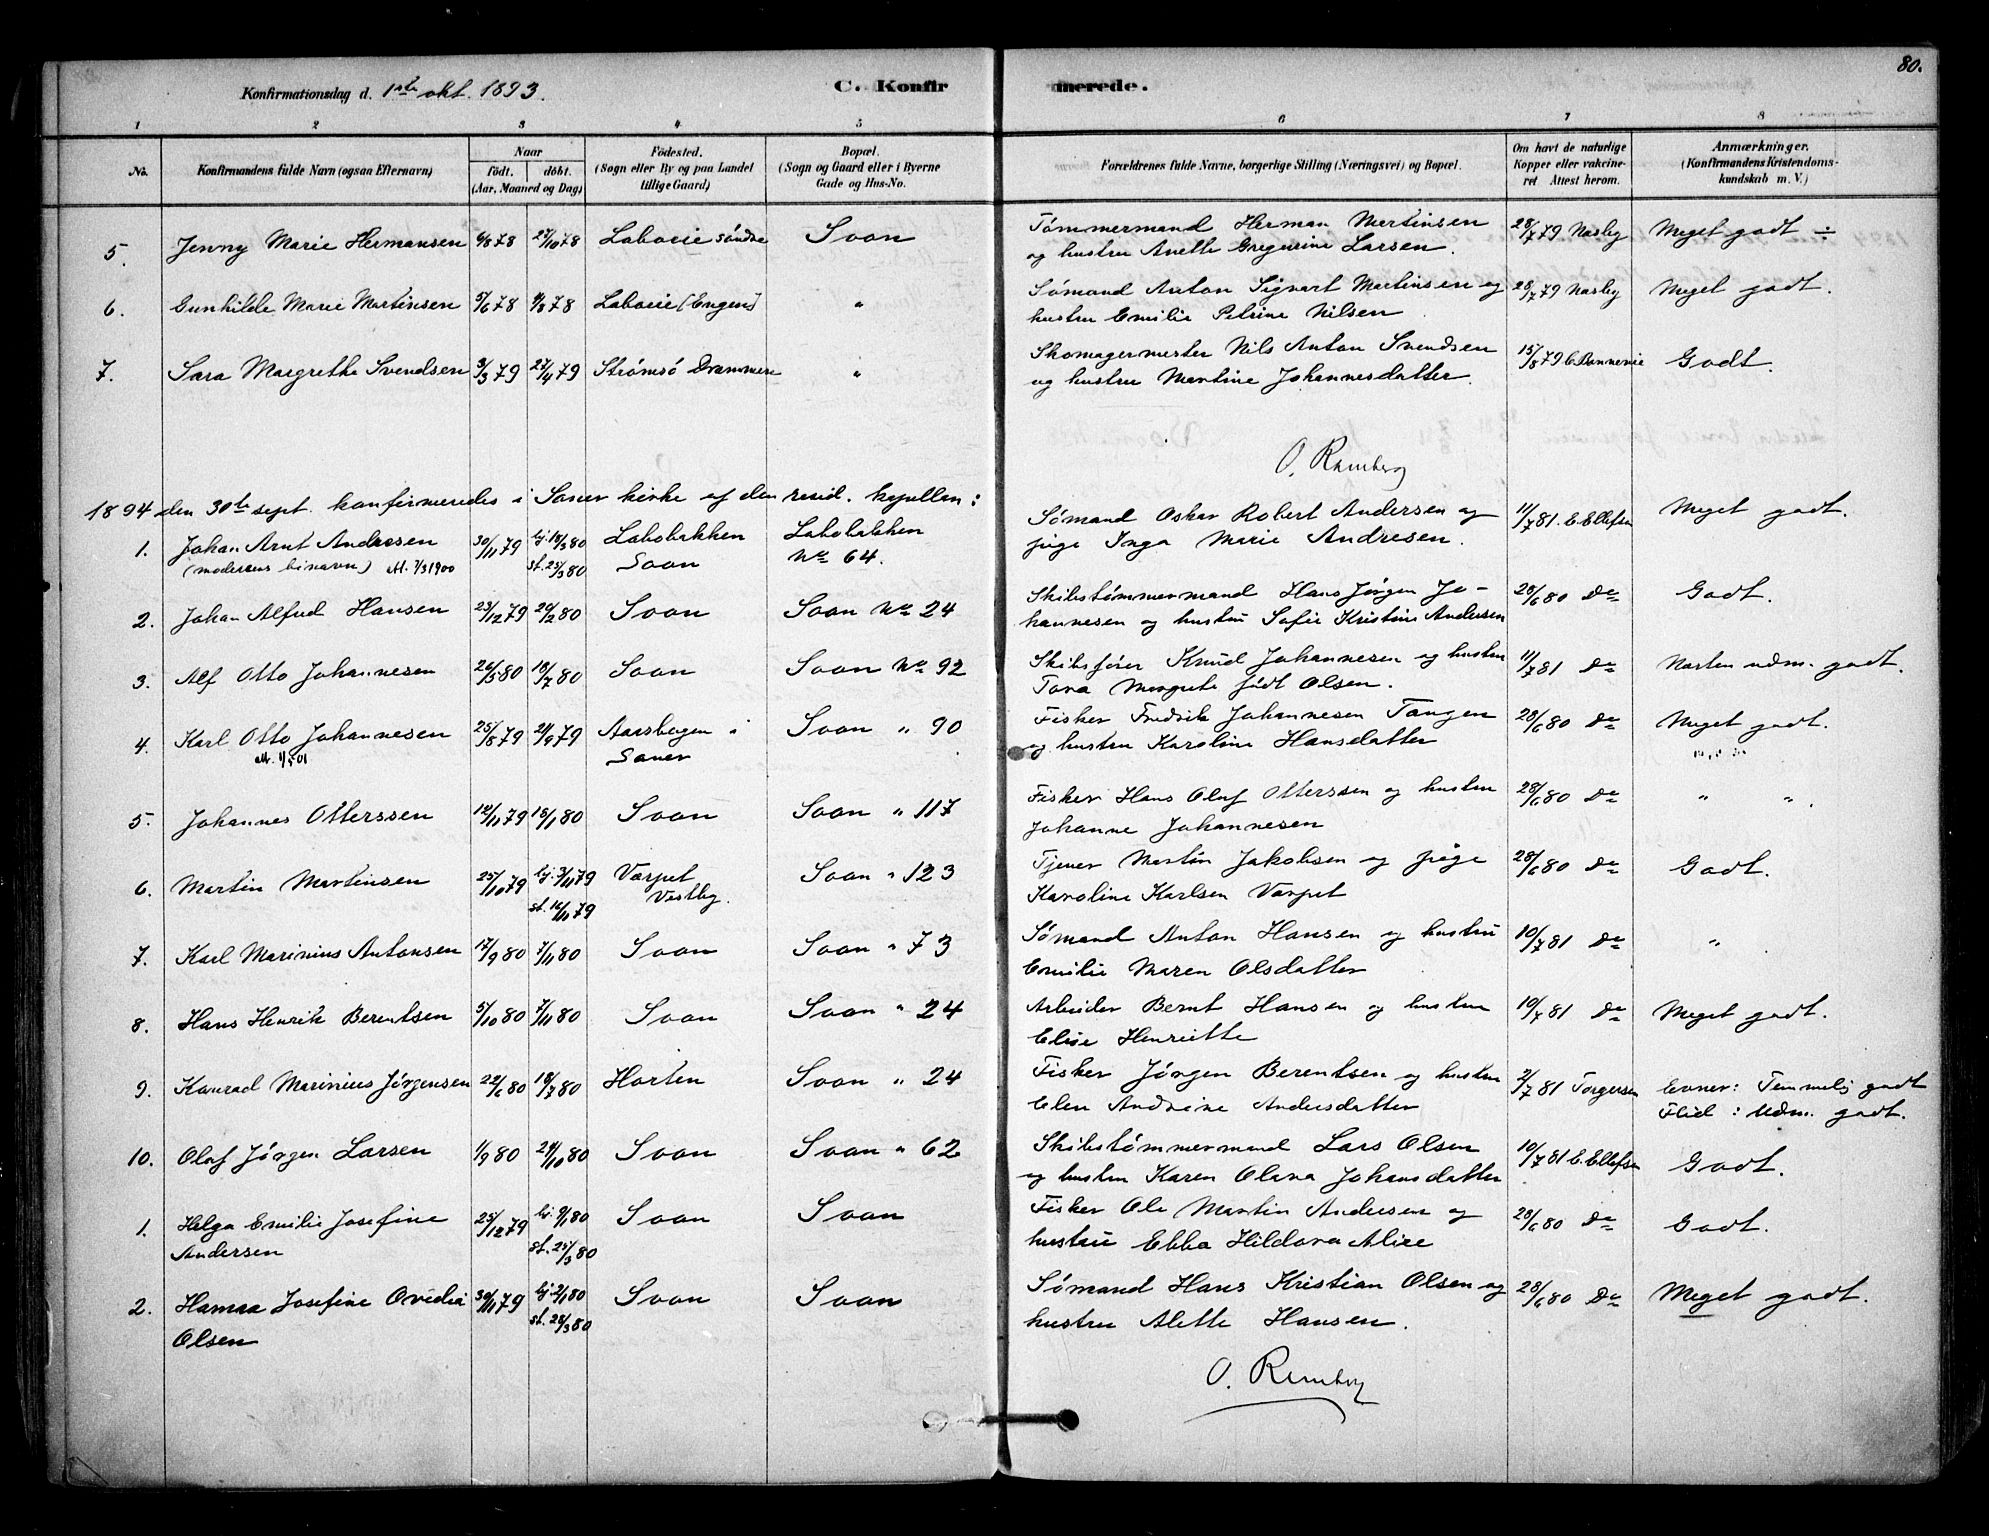 80.
Konfirmationsdag d. 1ste okt. 1893. C. Konfirmerede.
1 2 3 4 5 6 7 8
No. Konfirmandens fulde Navn (ogsaa Efternavn) Naar født. døbt. (Aar, Maaned og Dag) Fødested. (Sogn eller By og paa Landet tillige Gaard) Bopæl. (Sogn og Gaard eller i Byerne Gade og Hus-No. Forældrenes fulde Navne, borgerlige Stilling (Næringsvei) og Bopæl. Om havt de naturlige Kopper eller vakcineret Attest herom. Anmærkninger. (Konfirmandens Kristendomskundskab m. V.)
5. Jenny Marie Hermansen 6/8 78 27/10 78 Laboeie søndre Soon Tømmermand Herman Martinsen 28/7 79 Næsby Meget godt ÷
og hustru Anette Gregurine Larsen.
6. Gunhilde Marie Martinsen 5/6 78 4/8 78 Laboeie [Engen] " Sømand Anton Sigvart Martinsen og 28/7 79 Næsby Meget godt.
hustru Emilie Petrine Nilsen
7. Sara Margrethe Svendsen 3/3 79 27/4 79 Strømsø Drammen " Skomagermester Nils Anton Svendsen 15/8 79 Godt.
og hustru Martine Johannesdatter.
O. Ramberg
1894 den 30te sept. konfirmeredes i Saner kirke af den resid. kapellan:
1. Johan Arnt Andresen 30/11 79 hj. 18/3 80 Labobakken Labobakken Sømand Oskar Robert Andersen og 11/7 81. E. Ellefsen Meget godt.
(moderens binavn) Att. 7/3 1900 st. 25/3 80 Soon No 64. pige Inga Marie Andresen.
2. Johan Alfred Hansen 23/12 79 29/2 80 Soon Soon No 24 Skibstømmermand Hans Jørgen Jo- 28/6 80 Do Godt.
hannesen og hustru Sofie Kristine Andersen
3. Alf Otto Johannesen 26/5 80 18/7 80 Soon Soon No 92 Skibsfører Knud Johannesen og hustru 11/7 81 Do Næsten udm. godt.
Tora Margrete født Olsen.
4. Karl Otto Johannesen 25/8 79 21/9 79 Aarsbogen i Soon " 90 Fisker Fredrik Johannesen Tangen 28/6 80 Do Meget godt.
Att. 1/5 01 Saner og hustru Karoline Hansdatter
5. Johannes Otterssen 12/11 79 18/1 80 Soon Soon " 117 Fisker Hans Olaf Otterssen og hustru 28/6 80 Do " ".
Johanne Johannesen
6. Martin Martinsen 25/10 79 hj. 3/11 79 Varpet Soon " 123 Tjener Martin Jakobsen og pige 28/6 80 Do Godt.
st. 16/11 79 Vestby. Karoline Karlsen Varpet
7. Karl Marinius Antonsen 17/9 80 7/11 80 Soon Soon " 73 Sømand Anton Hansen og hustru 10/7 81 Do "
Emilie Maren Olsdatter
8. Hans Henrik Berentsen 5/10 80 7/11 80 Soon Soon " 24 Arbeider Bernt Hansen og hustru 10/7 81 Do Meget godt.
Elise Henriette
9. Konrad Marinius Jørgensen 22/6 80 18/7 80 Horten Soon " 24 Fisker Jørgen Berentsen og hustru 2/7 81 Torgersen Evner: Temmelig godt
Elen Andrine Andersdatter Flid: Udm. godt.
10. Olaf Jørgen Larsen 1/9 80 24/10 80 Soon Soon " 62 Skibstømmermand Lars Olsen 10/7 81 E. Ellefsen Godt.
og hustru Karen Olava Johansdatter
1. Helga Emilie Josefine 25/12 79 hj. 9/1 80 Soon Soon Fisker Ole Martin Andersen og 28/6 80 Do Godt.
Andersen st. 25/3 80 hustru Ebba Hildora Alise
2. Hanna Josefine Ovidia 30/11 79 hj. 2/1 80 Soon Soon Sømand Hans Kristian Olsen og 28/6 80 Do Meget godt.
Olsen st. 28/3 80 hustru Alette Hansen.
O. Ramberg